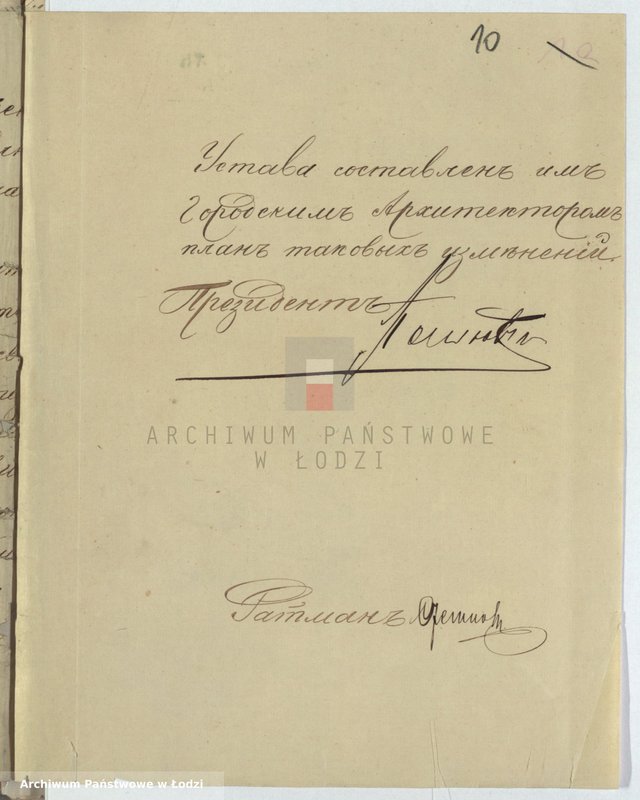 10
Устава составленъ имъ
Городскимъ Архитекторомъ
планъ таковыхъ измѣненій.
Президентъ
ARCHIWUM PAŃSTWOWE
W ŁODZI
Ратманъ
Archiwum Państwowe w Łodzi